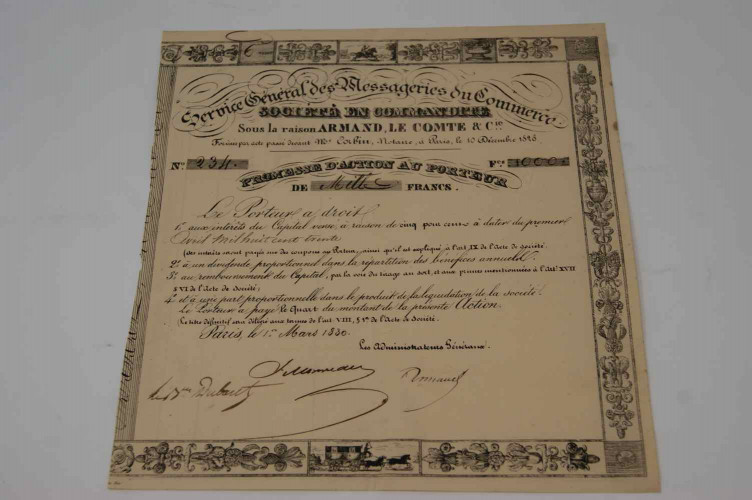 Service Général des Messageries du Commerce
SOCIÉTÉ EN COMMANDITE
Sous la raison ARMAND, LE COMTE & Cie
Formée par acte passé devant Me Corbin, Notaire, à Paris, le 10 Décembre 1828
No 234. Fs 1000
PROMESSE D'ACTION AU PORTEUR
DE Mille FRANCS.
Le Porteur a droit
1o aux intérêts du Capital versé, à raison de cinq pour cent à dater du premier
Avril Mil huit cent trente
(les intérêts seront payés sur des coupons au Porteur, ainsi qu'il est expliqué à l'art. IX de l'acte de société.
2o à un dividende proportionnel dans la répartition des bénéfices annuels.
3o au remboursement du Capital, par la voie du tirage au sort, et aux primes mentionnées à l'Art. XVII
§ VI de l'Acte de Société;
4o et à une part proportionnelle dans le produit de la liquidation de la société.
Le Porteur a payé le Quart du montant de la présente Action.
(Le titre définitif sera délivré aux termes de l'art. VIII, § 1er de l'Acte de Société.
Paris, le 1er Mars 1830.
Les Administrateurs Généraux.